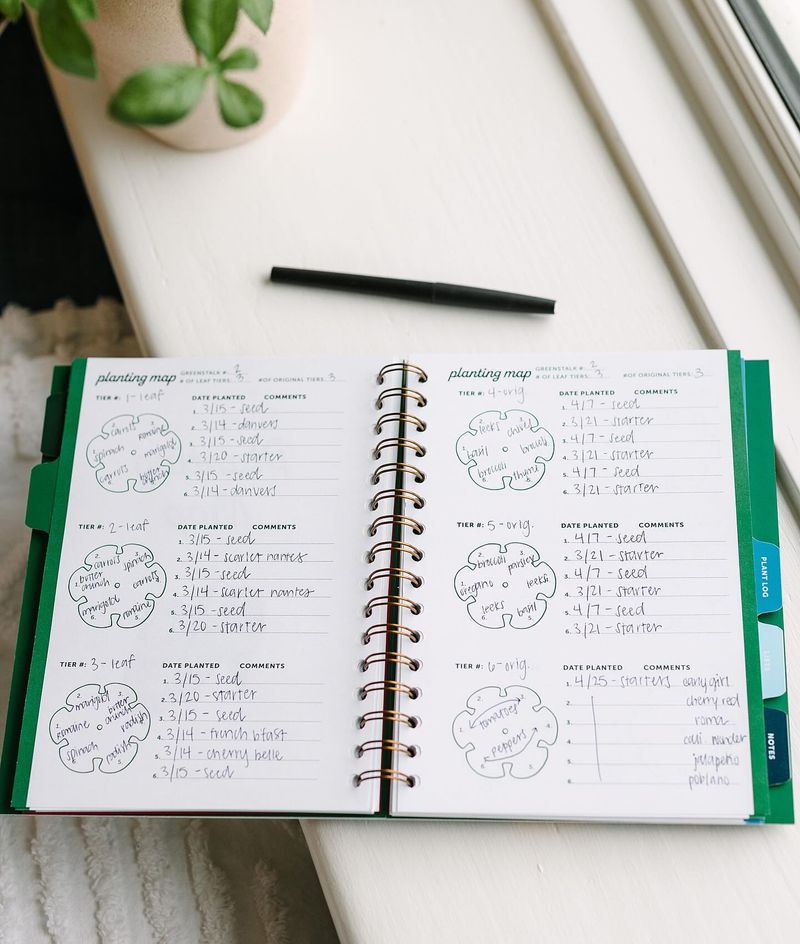 planting map GREENSTALK #: 2
# OF LEAF TIERS: 3 # OF ORIGINAL TIERS: 3
TIER #: 1-leaf DATE PLANTED COMMENTS
1. 3/15 - seed
2. 3/14 - danvers
3. 3/15 - seed
4. 3/20 - starter
5. 3/15 - seed
6. 3/14 - danvers
carrots romaine
spinach marigold
carrots butter crunch
TIER #: 2-leaf DATE PLANTED COMMENTS
1. 3/15 - seed
2. 3/14 - scarlet nantes
3. 3/15 - seed
4. 3/14 - scarlet nantes
5. 3/15 - seed
6. 3/20 - starter
carrots spinach
butter crunch carrots
marigold romaine
TIER #: 3-leaf DATE PLANTED COMMENTS
1. 3/15 - seed
2. 3/20 - starter
3. 3/15 - seed
4. 3/14 - french bfast
5. 3/14 - cherry belle
6. 3/15 - seed
marigold butter crunch
romaine radish
spinach radish
planting map GREENSTALK #: 2
# OF LEAF TIERS: 3 # OF ORIGINAL TIERS: 3
TIER #: 4-orig. DATE PLANTED COMMENTS
1. 4/7 - seed
2. 3/21 - starter
3. 4/7 - seed
4. 3/21 - starter
5. 4/7 - seed
6. 3/21 - starter
leeks chives
basil broccoli
broccoli thyme
TIER #: 5-orig. DATE PLANTED COMMENTS
1. 4/7 - seed
2. 3/21 - starter
3. 4/7 - seed
4. 3/21 - starter
5. 4/7 - seed
6. 3/21 - starter
broccoli parsley
oregano leeks
leeks basil
TIER #: 6-orig. DATE PLANTED COMMENTS
1. 4/25 - starters early girl
2. cherry red
3. roma
4. cali. wonder
5. jalapeño
6. poblano
tomatoes
peppers
PLANT LOG
NOTES